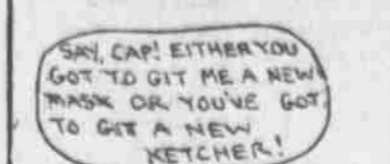 SAY, CAP! EITHER YOU
GOT TO GIT ME A NEW
MASK OR YOU'VE GOT
TO GIT A NEW
KETCHER!